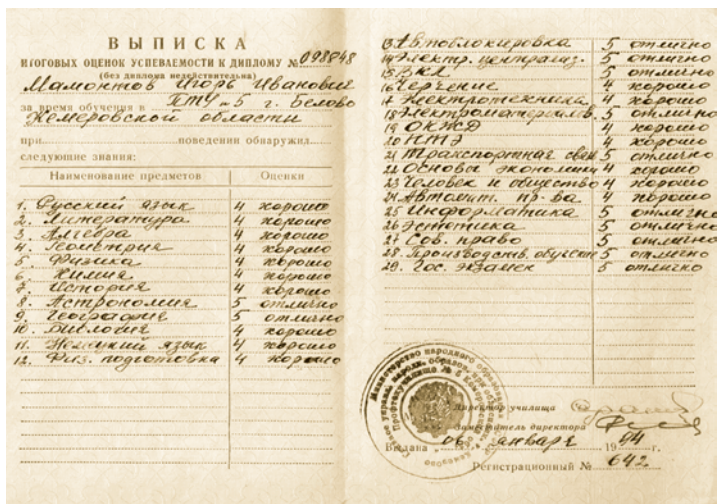 ВЫПИСКА
ИТОГОВЫХ ОЦЕНОК УСПЕВАЕМОСТИ К ДИПЛОМУ № 098848
(без диплома недействительна)
Мамонтов Игорь Иванович
за время обучения в ПТУ-5 г. Белово
Кемеровской области
при поведении обнаружил
следующие знания:
Наименование предметов Оценки
1. Русский язык 4 хорошо
2. Литература 4 хорошо
3. Алгебра 4 хорошо
4. Геометрия 4 хорошо
5. Физика 4 хорошо
6. Химия 4 хорошо
7. История 4 хорошо
8. Астрономия 5 отлично
9. География 5 отлично
10. Биология 4 хорошо
11. Немецкий язык 4 хорошо
12. Физ. подготовка 4 хорошо
13 Автоблокировка 5 отлично
14 Электр. централиз. 5 отлично
15 ВКЛ 5 отлично
16 Черчение 4 хорошо
17 Электротехника 4 хорошо
18 Электроматериалов. 5 отлично
19 ОКЖД 4 хорошо
20 НТЭ 4 хорошо
21 Транспортная связь 5 отлично
22 Основы экономики 4 хорошо
23 Человек и общество 4 хорошо
24 Автомат. пр-ва 4 хорошо
25 Информатика 5 отлично
26 Эстетика 5 отлично
27 Сов. право 5 отлично
28. Производств. обучен 5 отлично
29. Гос. экзамен 5 отлично
Министерство народного
Директор училища
Заместитель директора
Выдана 06 января 1994 г.
Регистрационный № 642